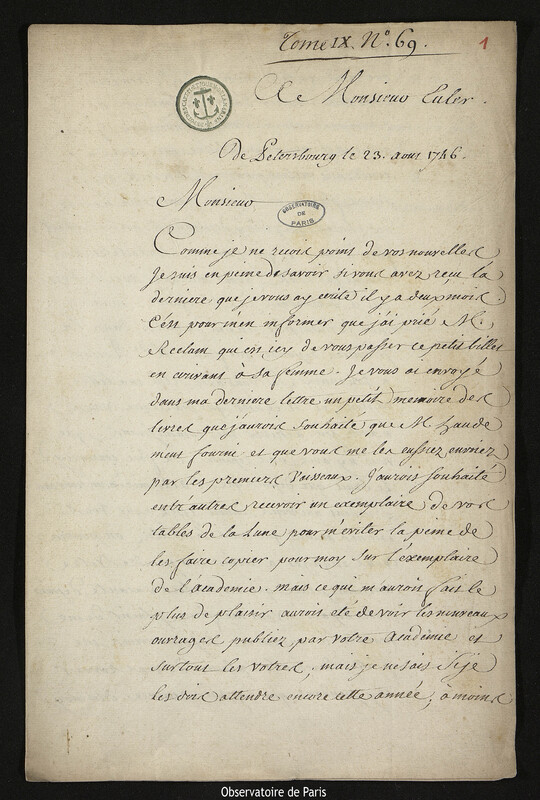 Tome IX. N.º 69.
1
A Monsieur Euler.
De Petersbourg le 23. aout 1746.
OBSERVATOIRE
DE
PARIS
Monsieur
Comme je ne recois point de vos nouvelles
Je suis en peine de savoir si vous avez reçu la
derniere que je vous ay ecrite il y a deux mois.
C'est pour m'en informer que j'ai prié M.
Reclam qui est icy de vous passer ce petit billet
en ecrivant à sa femme. Je vous ai envoyé
dans ma derniere lettre un petit memoire des
livres que j'aurois souhaité que M. Haude
m'eut fourni et que vous me les eussiez envoiez
par les premiers Vaisseaux. J'aurois souhaité
entr'autres recevoir un exemplaire de vos
tables de la Lune pour m'eviter la peine de
les faire copier pour moy sur l'exemplaire
de l'academie. mais ce qui m'auroit fait le
plus de plaisir auroit eté de voir les nouveaux
ouvrages publiez par votre Academie et
surtout les votres, mais je ne sais si je
les dois attendre encore cette année, à moins
Observatoire de Paris